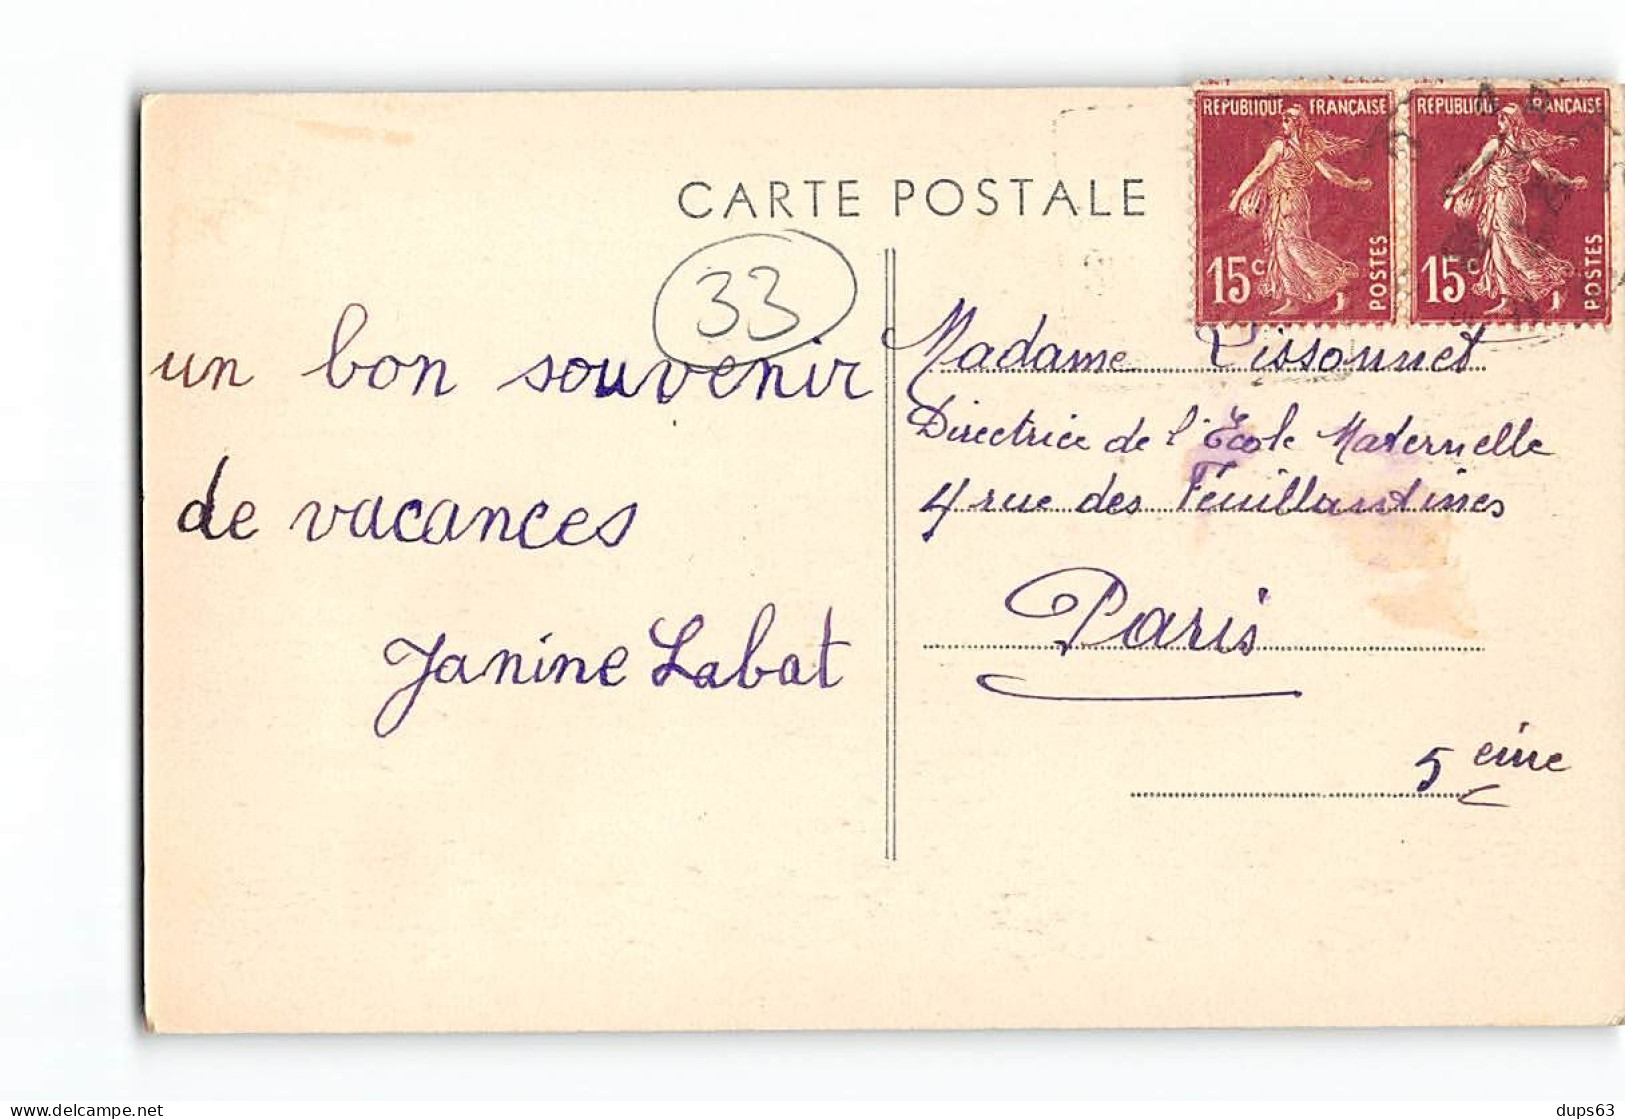 RÉPUBLIQUE FRANÇAISE
RÉPUBLIQUE FRANÇAISE
15c
POSTES
15c
POSTES
CARTE POSTALE
33
un bon souvenir
de vacances
Janine Labat
Madame Lissonnet
Directrice de l'École Maternelle
4 rue des Feuillantines
Paris
5 eme
delcampe.net
dups63